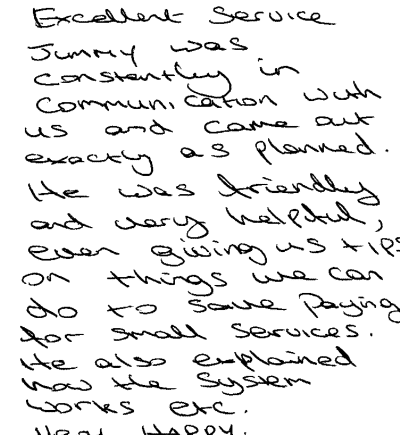 Excellent Service
Jimmy was
constantly in
communication with
us and came out
exactly as planned.
He was friendly
and very helpful,
even giving us tips
on things we can
do to save paying
for small services.
He also explained
how the system
works etc.
Very HAPPY.